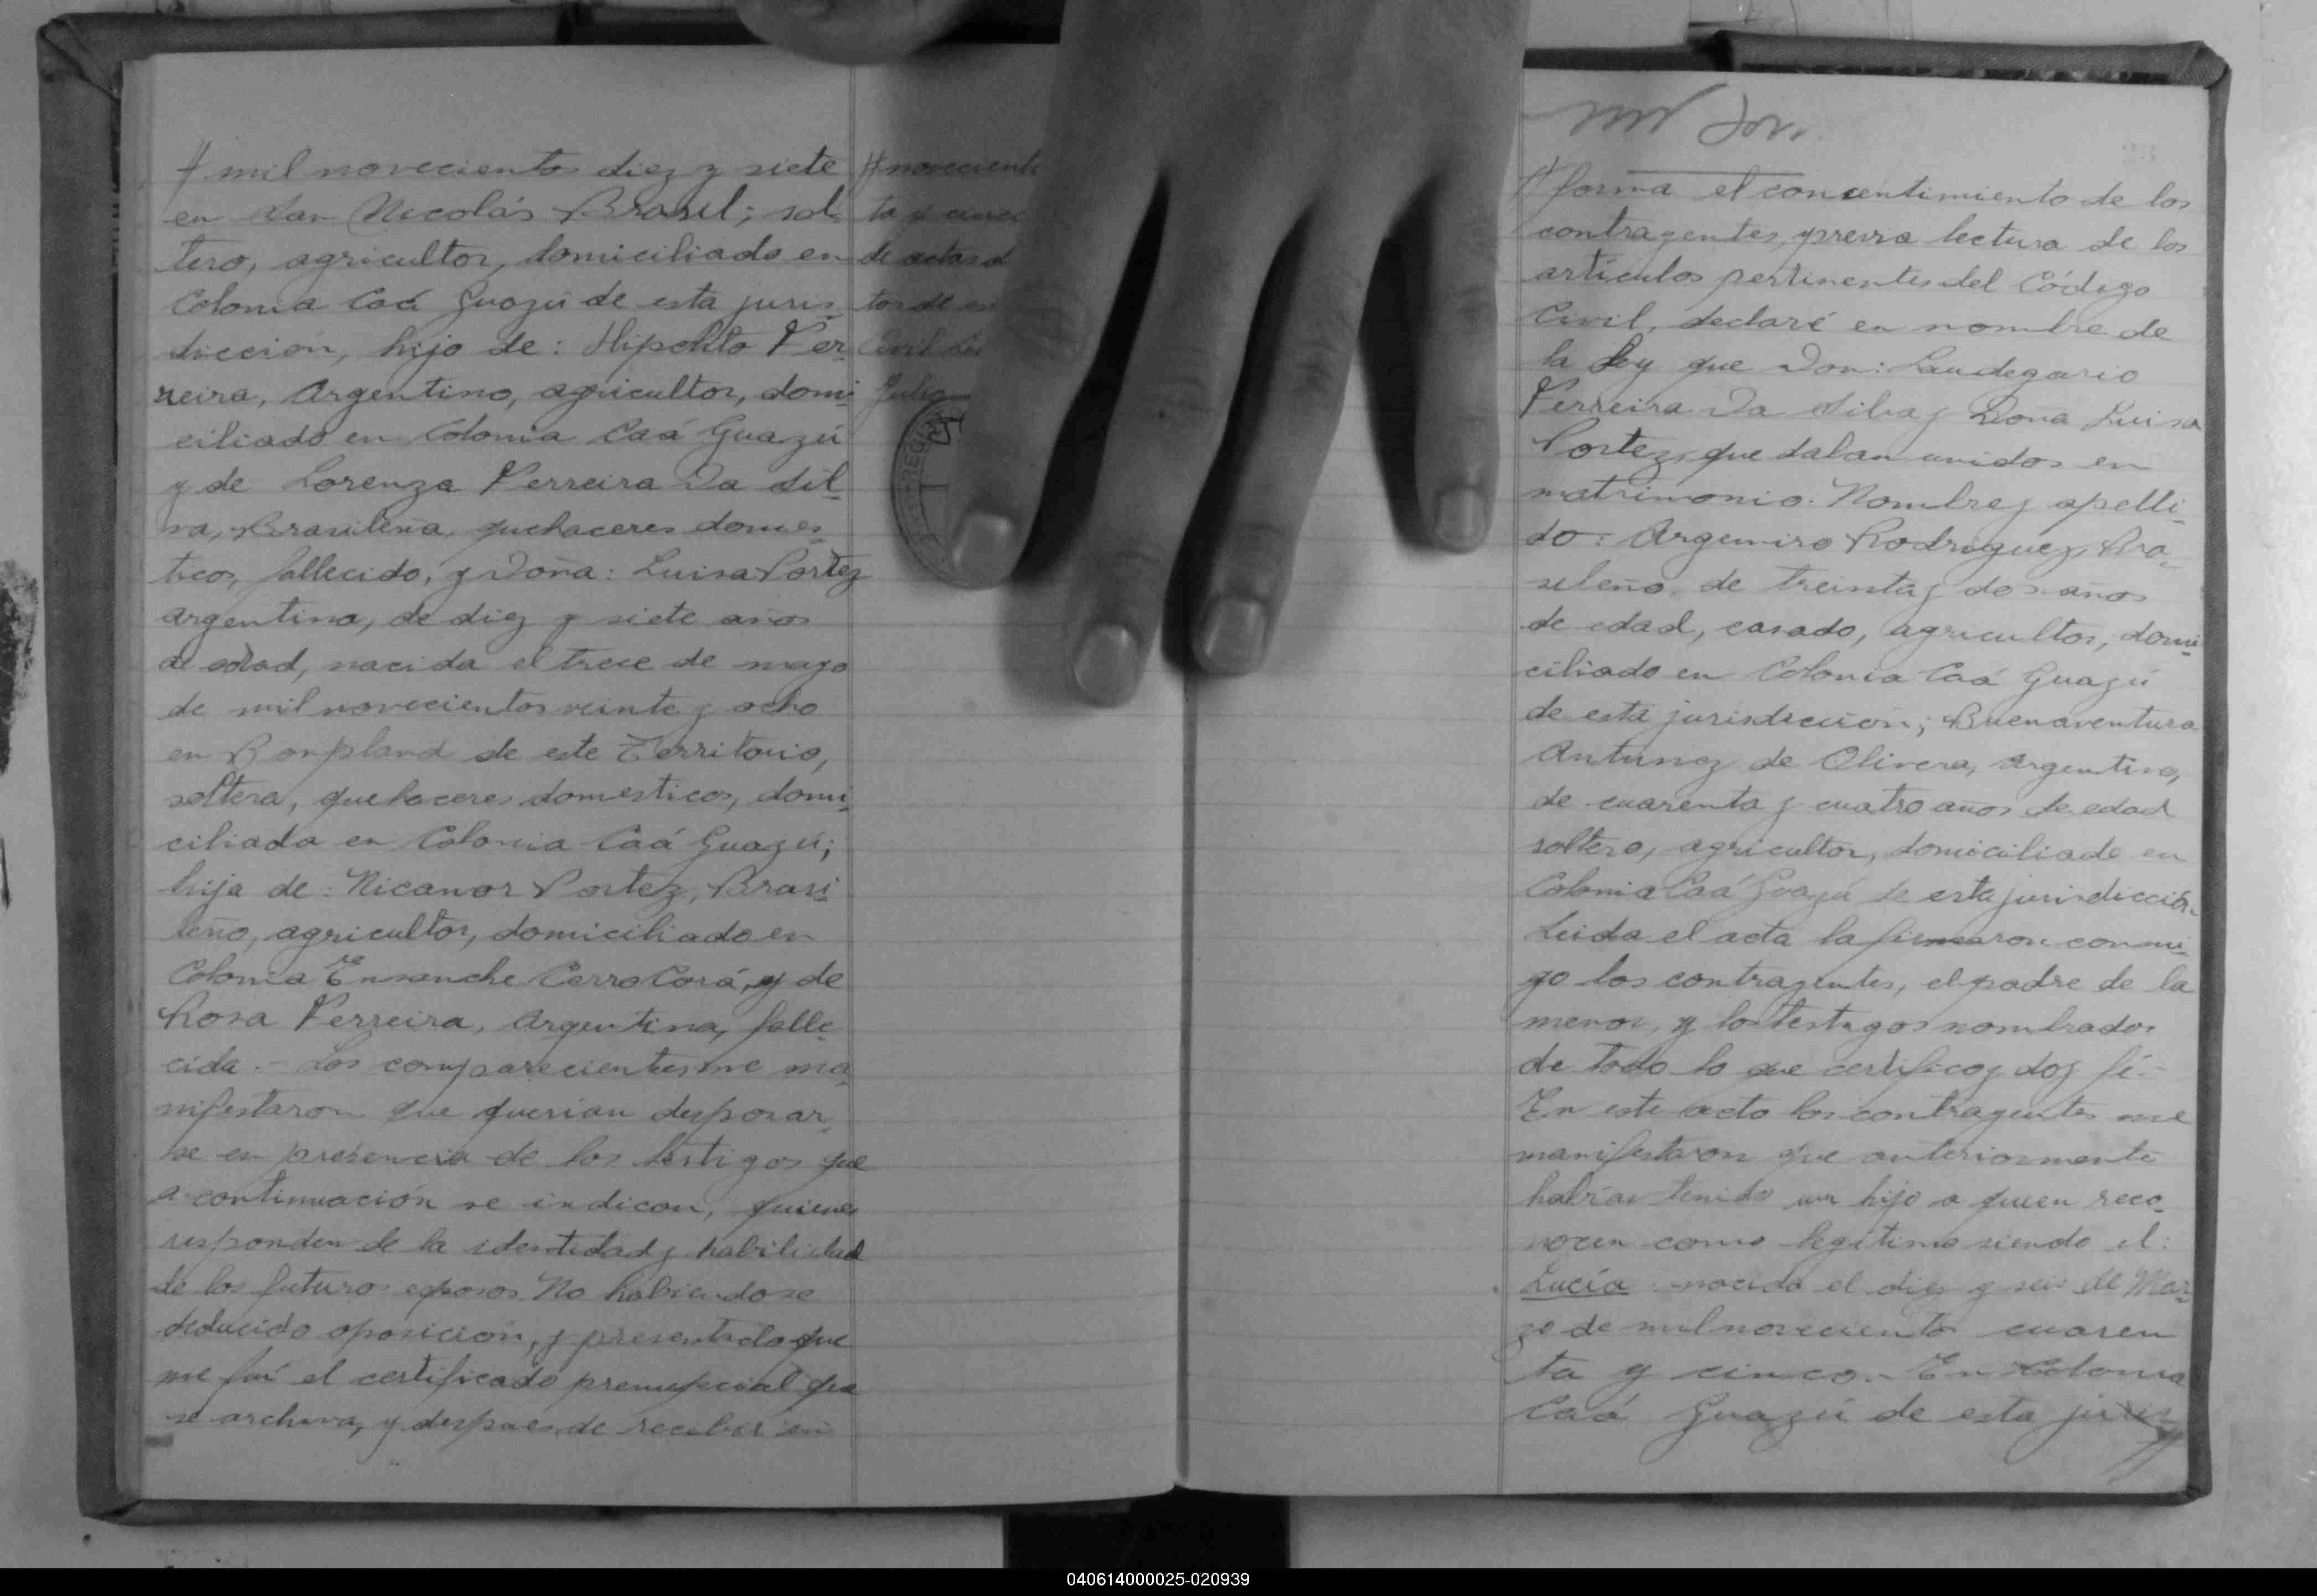 # mil novecientos diez y siete
en San Nicolás Brasil; sol-
tero, agricultor, domiciliado en
Colonia Caá Guazú de esta juris-
dicción, hijo de: Hipolito Fer-
reira, Argentino, agricultor, domi-
ciliado en Colonia Caá Guazú
y de Lorenza Ferreira Da Sil-
va, Brasileña, quehaceres domes-
ticos, fallecido, y Doña: Luisa Portez
argentina, de diez y siete años
de edad, nacida el trece de mayo
de mil novecientos veinte y ocho
en Bonpland de este Territorio,
soltera, quehaceres domesticos, domi-
ciliada en Colonia Caá Guazú;
hija de: Nicanor Portez, Brasi-
leño, agricultor, domiciliado en
Colonia Ensanche Cerro Corá, y de
Rosa Ferreira, Argentina, falle-
cida.- Los comparecientes me ma-
nifestaron que querian desposar-
se en presencia de los testigos que
a continuación se indican, quienes
responden de la identidad y habilidad
de los futuros esposos. No habiendose
deducido oposición, y presentado que
me fué el certificado prenupcial que
se archiva, y despues de recibir en
# noveciento
ta y cinco
de actas d
tos de es
Civil
Julio
# forma el concentimiento de los
contragentes, y previa lectura de los
artículos pertinentes del Código
Civil, declaré en nombre de
la Ley que Don: Laudegario
Ferreira Da Silva y Dona Luisa
Portez, que daban unidos en
matrimonio. Nombre y apelli-
do: Argemiro Rodriguez, Bra-
sileño, de treinta y dos años
de edad, casado, agricultor, domi-
ciliado en Colonia Caá Guazú
de esta jurisdicción; Buenaventura
Antunez de Olivera, Argentino,
de cuarenta y cuatro años de edad
soltero, agricultor, domiciliado en
Colonia Caá Guazú de esta jurisdicción.
Leida el acta la firmaron conmi-
go los contragentes, el padre de la
menor, y los testigos nombrados
de todo lo que certifico y doy fé.-
En este acto los contragentes me
manifestaron que anteriormente
habian tenido un hijo a quien reco-
nocen como legítimo siendo el:
Lucía nacida el diez y seis de Mar-
zo de mil noveciento cuaren
ta y cinco.- En Colonia
Caá Guazú de esta juris
040614000025-020939